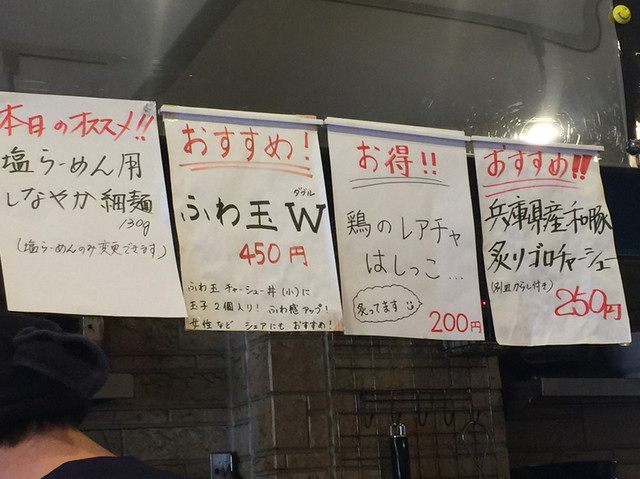 本日のオススメ!!
塩らーめん用
しなやか細麺
130g
(塩らーめんのみ変更できます)
おすすめ!
ダブル
ふわ玉W
450円
ふわ玉チャーシュー丼(小)に
玉子2個入り! ふわ感アップ!
女性など シェアにもおすすめ!
お得!!
鶏のレアチャ
はしっこ...
炙ってます
200円
おすすめ!!
兵庫県産和豚
炙りゴロチャーシュー
(別皿からし付き)
250円